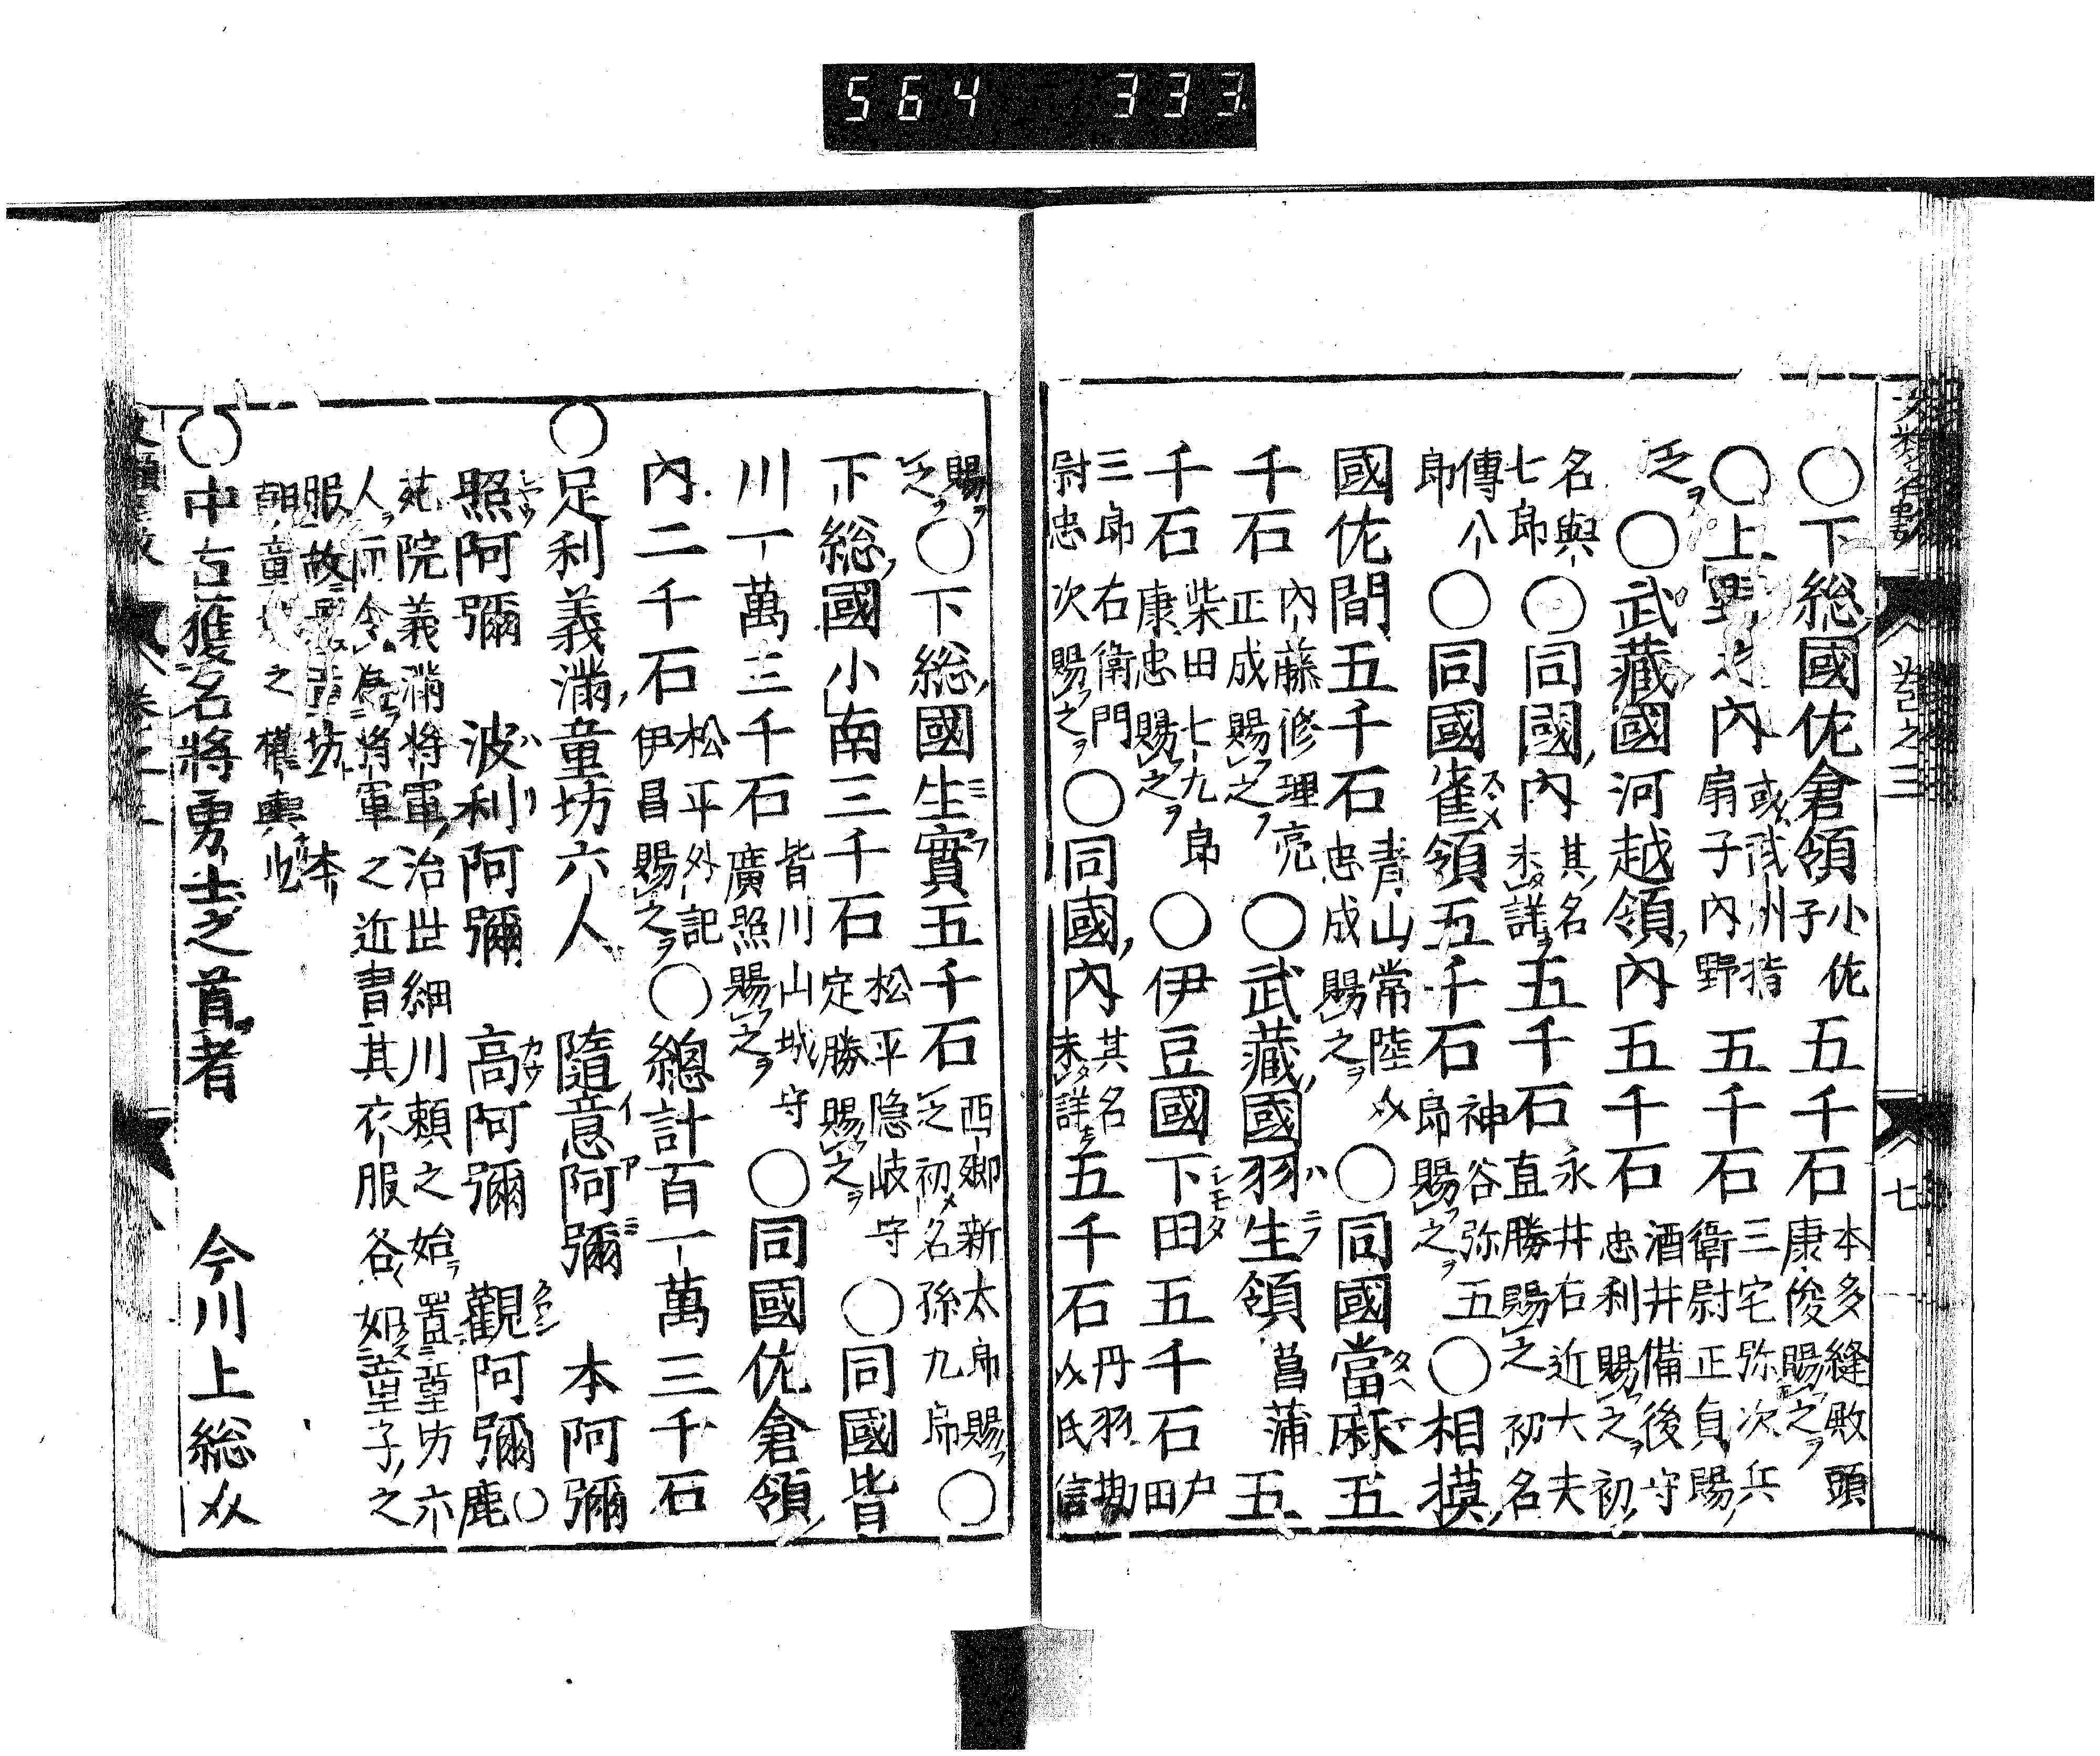 564 333
〇下総國佐倉領小佐子五千石本多縫殿頭康俊賜之
〇上野之内或武州指扇子内野五千石三宅弥次兵衛尉正貞賜
之〇武藏國河越領内五千石酒井備後守忠利賜之初
名與七郎〇同國内其名未詳五千石永井右近大夫直勝賜之初名
傳八郎〇同國雀領五千石神谷弥五郎賜之〇相摸
國佐間五千石青山常陸介忠成賜之〇同國當麻五
千石内藤修理亮正成賜之〇武藏國羽生領菖蒲五
千石柴田七九郎康忠賜之〇伊豆國下田五千石戸田
三郎右衛門尉忠次賜之〇同國内其名未詳五千石丹羽勘介氏信
賜之〇下総國生實五千石西郷新太郎賜之初名孫九郎〇
下総國小南三千石松平隠岐守定勝賜之〇同國皆
川一萬三千石皆川山城守廣照賜之〇同國佐倉領
内二千石松平外記伊昌賜之〇總計百一萬三千石
〇足利義滿童坊六人 隨意阿彌 本阿彌
照阿彌 波利阿彌 高阿彌 觀阿彌〇鹿
苑院義滿将軍治世細川頼之始置童坊六
人而令為将軍之近習其衣服各如童子之
服故 童坊 本
朝童 之權輿也
〇中古獲名将勇士之首者 今川上総介
卷之三
七